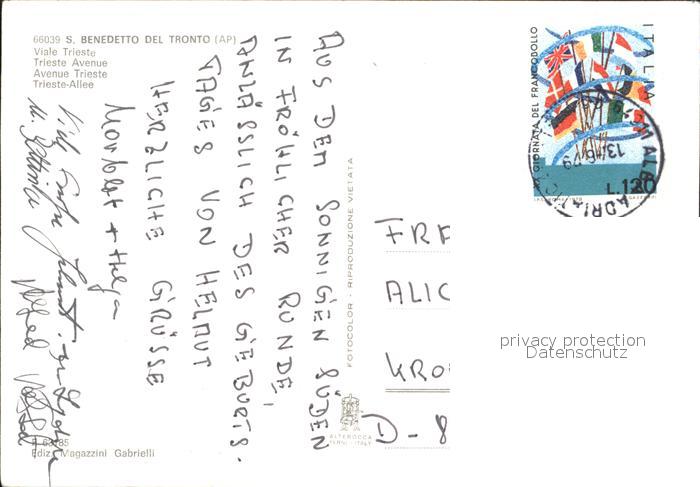 66039 S. BENEDETTO DEL TRONTO (AP)
Viale Trieste
Trieste Avenue
Avenue Trieste
Trieste-Allee
AUS DEM SONNIGEN SÜDEN
IN FRÖHLICHER RUNDE,
ANLÄSSLICH DES GEBURTS-
TAGES VON HELMUT
HERZLICHE GRÜSSE
+ Helga
Viele Grüße
Alfred
Ediz. Magazzini Gabrielli
FOTOCOLOR - RIPRODUZIONE VIETATA
ALTEROCCA
TERNI - ITALY
XX GIORNATA DEL FRANCOBOLLO
ITALIA
L.120
13-6-79
FRA
ALIC
KRO
D-8
privacy protection
Datenschutz